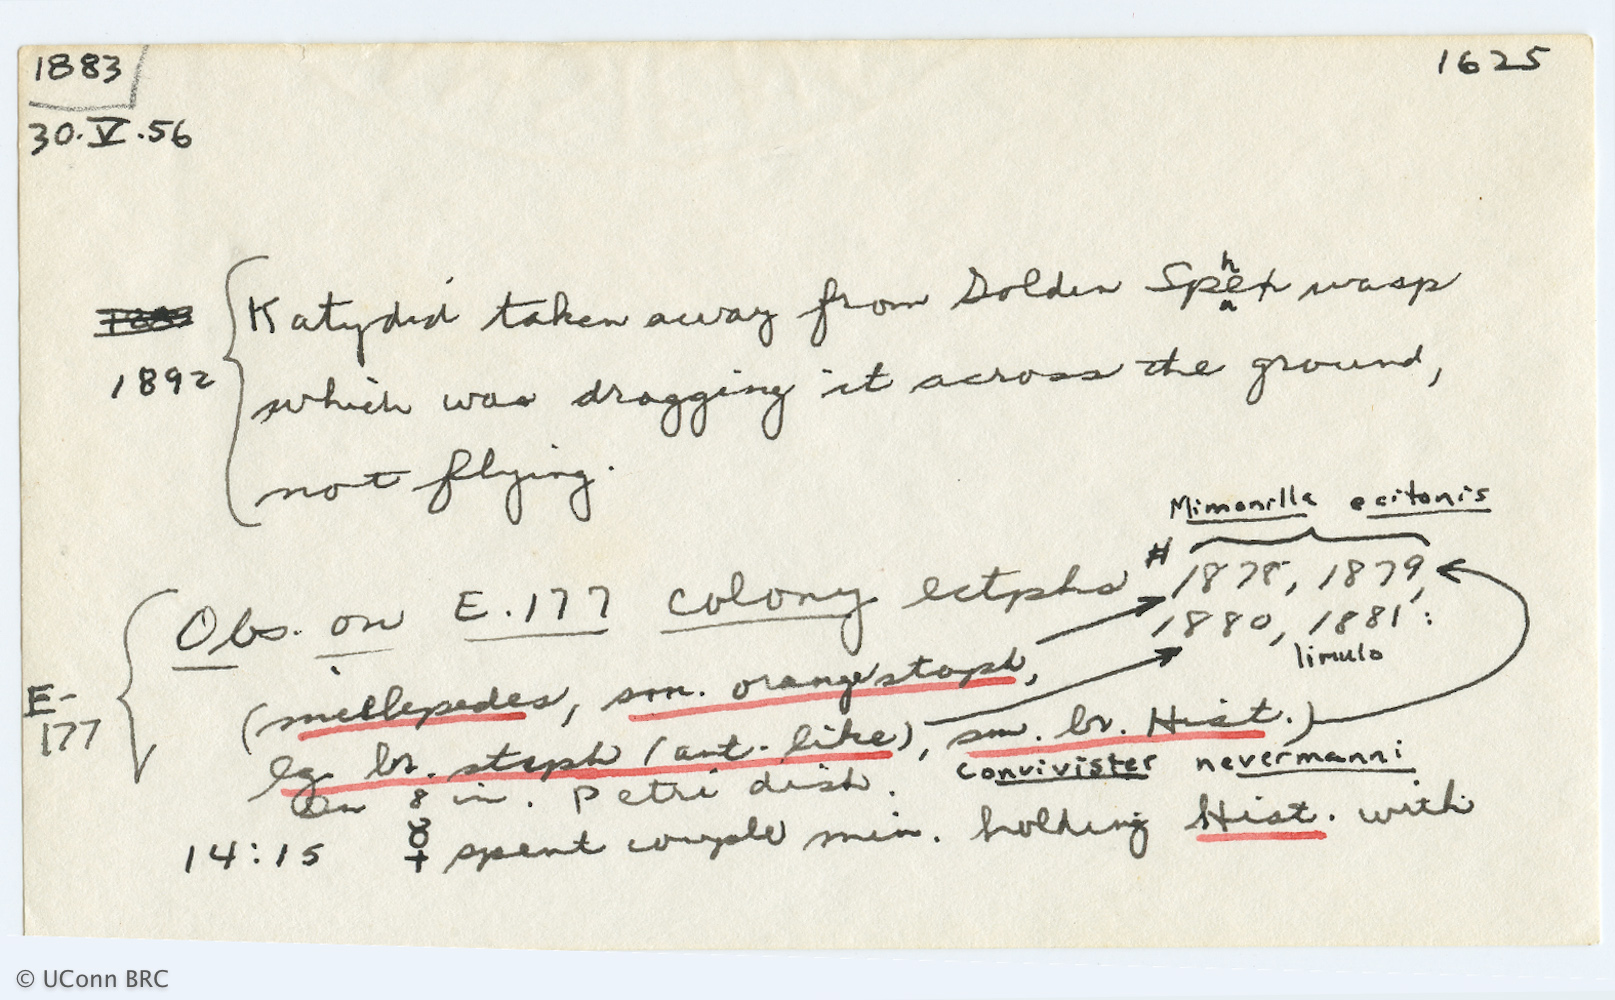 1883
1625
30.V.56
Katydid taken away from Golden Sphex wasp
1892
which was dragging it across the ground,
not flying.
Mimonilla ecitonis
Obs. on E.177 colony ectphs # 1878, 1879,
1880, 1881:
limulo
(millepedes, sm. orange staph,
E-177
lg. br. staph (ant-like), sm. br. Hist.)
convivister nevermanni
In 8 in. Petri dish.
14:15 ☿ spent couple min. holding Hist. with
© UConn BRC